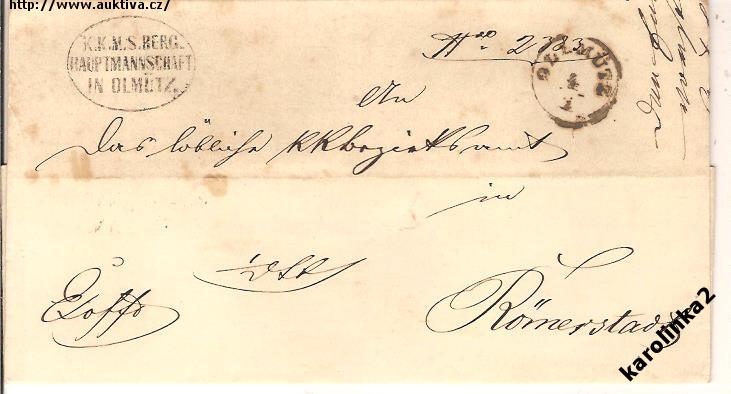 http://www.auktiva.cz/
K.K.M.S. BERG-
HAUPTMANNSCHAFT
IN OLMÜTZ.
No 2783
OLMÜTZ
4
1
An
Das löbliche k k Bezirksamt
in
Römerstadt
Exoffo
karolinka2